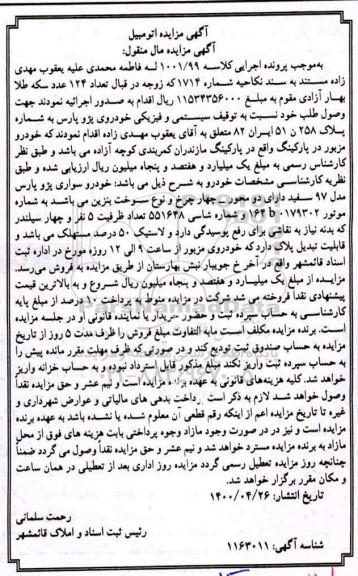 آگهی مزایده اتومبیل
آگهی مزایده مال منقول:
به‌موجب پرونده اجرایی کلاسه ۱۰۰۱/۹۹ لــه فاطمه محمدی علیه یعقوب مهدی
زاده مستند به سند نکاحیه شماره ۱۷۱۴که زوجه در قبال تعداد ۱۲۴ عدد سکه طلا
بهار آزادی مقوم به مبلغ ۱۱۵۳۴۳۵۶۰۰۰ ریال اقدام به صدور اجرائیه نمودند جهت
وصول طلب خود نسبت به توقیف سیستمی و فیزیکی خودروی پژو پارس به شماره
پلاک ۲۵۸ ن ۵۱ ایران ۸۲ متعلق به آقای یعقوب مهدی زاده اقدام نمودند که خودرو
مزبور در پارکینگ واقع در پارکینگ مازندران کمربندی کوچه آزاده می باشد و طبق نظر
کارشناس رسمی به مبلغ یک میلیارد و هفتصد و پنجاه میلیون ریال ارزیابی شده و طبق
نظریه کارشناسی مشخصات خودرو به شرح ذیل می باشد: خودرو سواری پژو پارس
مدل ۹۷ سفید دارای دو محور چهار چرخ و نوع سوخت بنزین می باشد به شماره
موتور ۰۱۷۹۳۰۲ و شماره شاسی ۵۵۱۶۴۸ تعداد ظرفیت ۵ نفر و چهار سیلندر
که بدنه نیاز به نقاشی برای رفع پوسیدگی دارد و لاستیک ۵۰ درصد مستهلک می باشد و
قابلیت تبدیل پلاک دارد که خودروی مزبور از ساعت ۹ الی ۱۲ روزه مورخ در اداره ثبت
اسناد قائمشهر واقع در آخر خ جویبار نبش بهارستان از طریق مزایده به فروش می‌رسد.
مزایده از مبلغ یک میلیارد و هفتصد و پنجاه میلیون ریال شروع و به بالاترین قیمت
پیشنهادی نقداً فروخته می شود شرکت در مزایده منوط به پرداخت ۱۰ درصد از مبلغ پایه
کارشناسی به حساب سپرده ثبت و حضور خریدار یا نماینده قانونی او در جلسه مزایده
است. برنده مزایده مکلف است مابه التفاوت مبلغ فروش را ظرف مدت ۵ روز از تاریخ
مزایده به حساب صندوق ثبت تودیع کند و در صورتی که ظرف مهلت مقرر مانده پیش را
به حساب سپرده ثبت واریز نکند مبلغ مذکور قابل استرداد نبوده و به حساب خزانه واریز
خواهد شد. کلیه هزینه‌های قانونی به عهده برنده مزایده است و نیم عشر و حق مزایده نقداً
وصول خواهد شد لازم به ذکر است پرداخت بدهی های مالیاتی و عوارض شهرداری و
غیره تا تاریخ مزایده اعم از اینکه رقم قطعی آن معلوم شده یا نشده باشد به عهده برنده
مزایده است و نیز در در صورت وجود مازاد وجوه پرداختی بابت هزینه های فوق از محل
مازاد به برنده مزایده مسترد خواهد شد و نیم عشر و حق مزایده نقداً وصول می گردد ضمناً
چنانچه روز مزایده تعطیل رسمی گردد مزایده روز اداری بعد از تعطیلی در همان ساعت
و مکان مقرر برگزار خواهد شد.
تاریخ انتشار: ۱۴۰۰/۰۴/۲۶
رحمت سلمانی
رئیس ثبت اسناد و املاک قائمشهر
شناسه آگهی: ۱۱۶۳۰۱۱